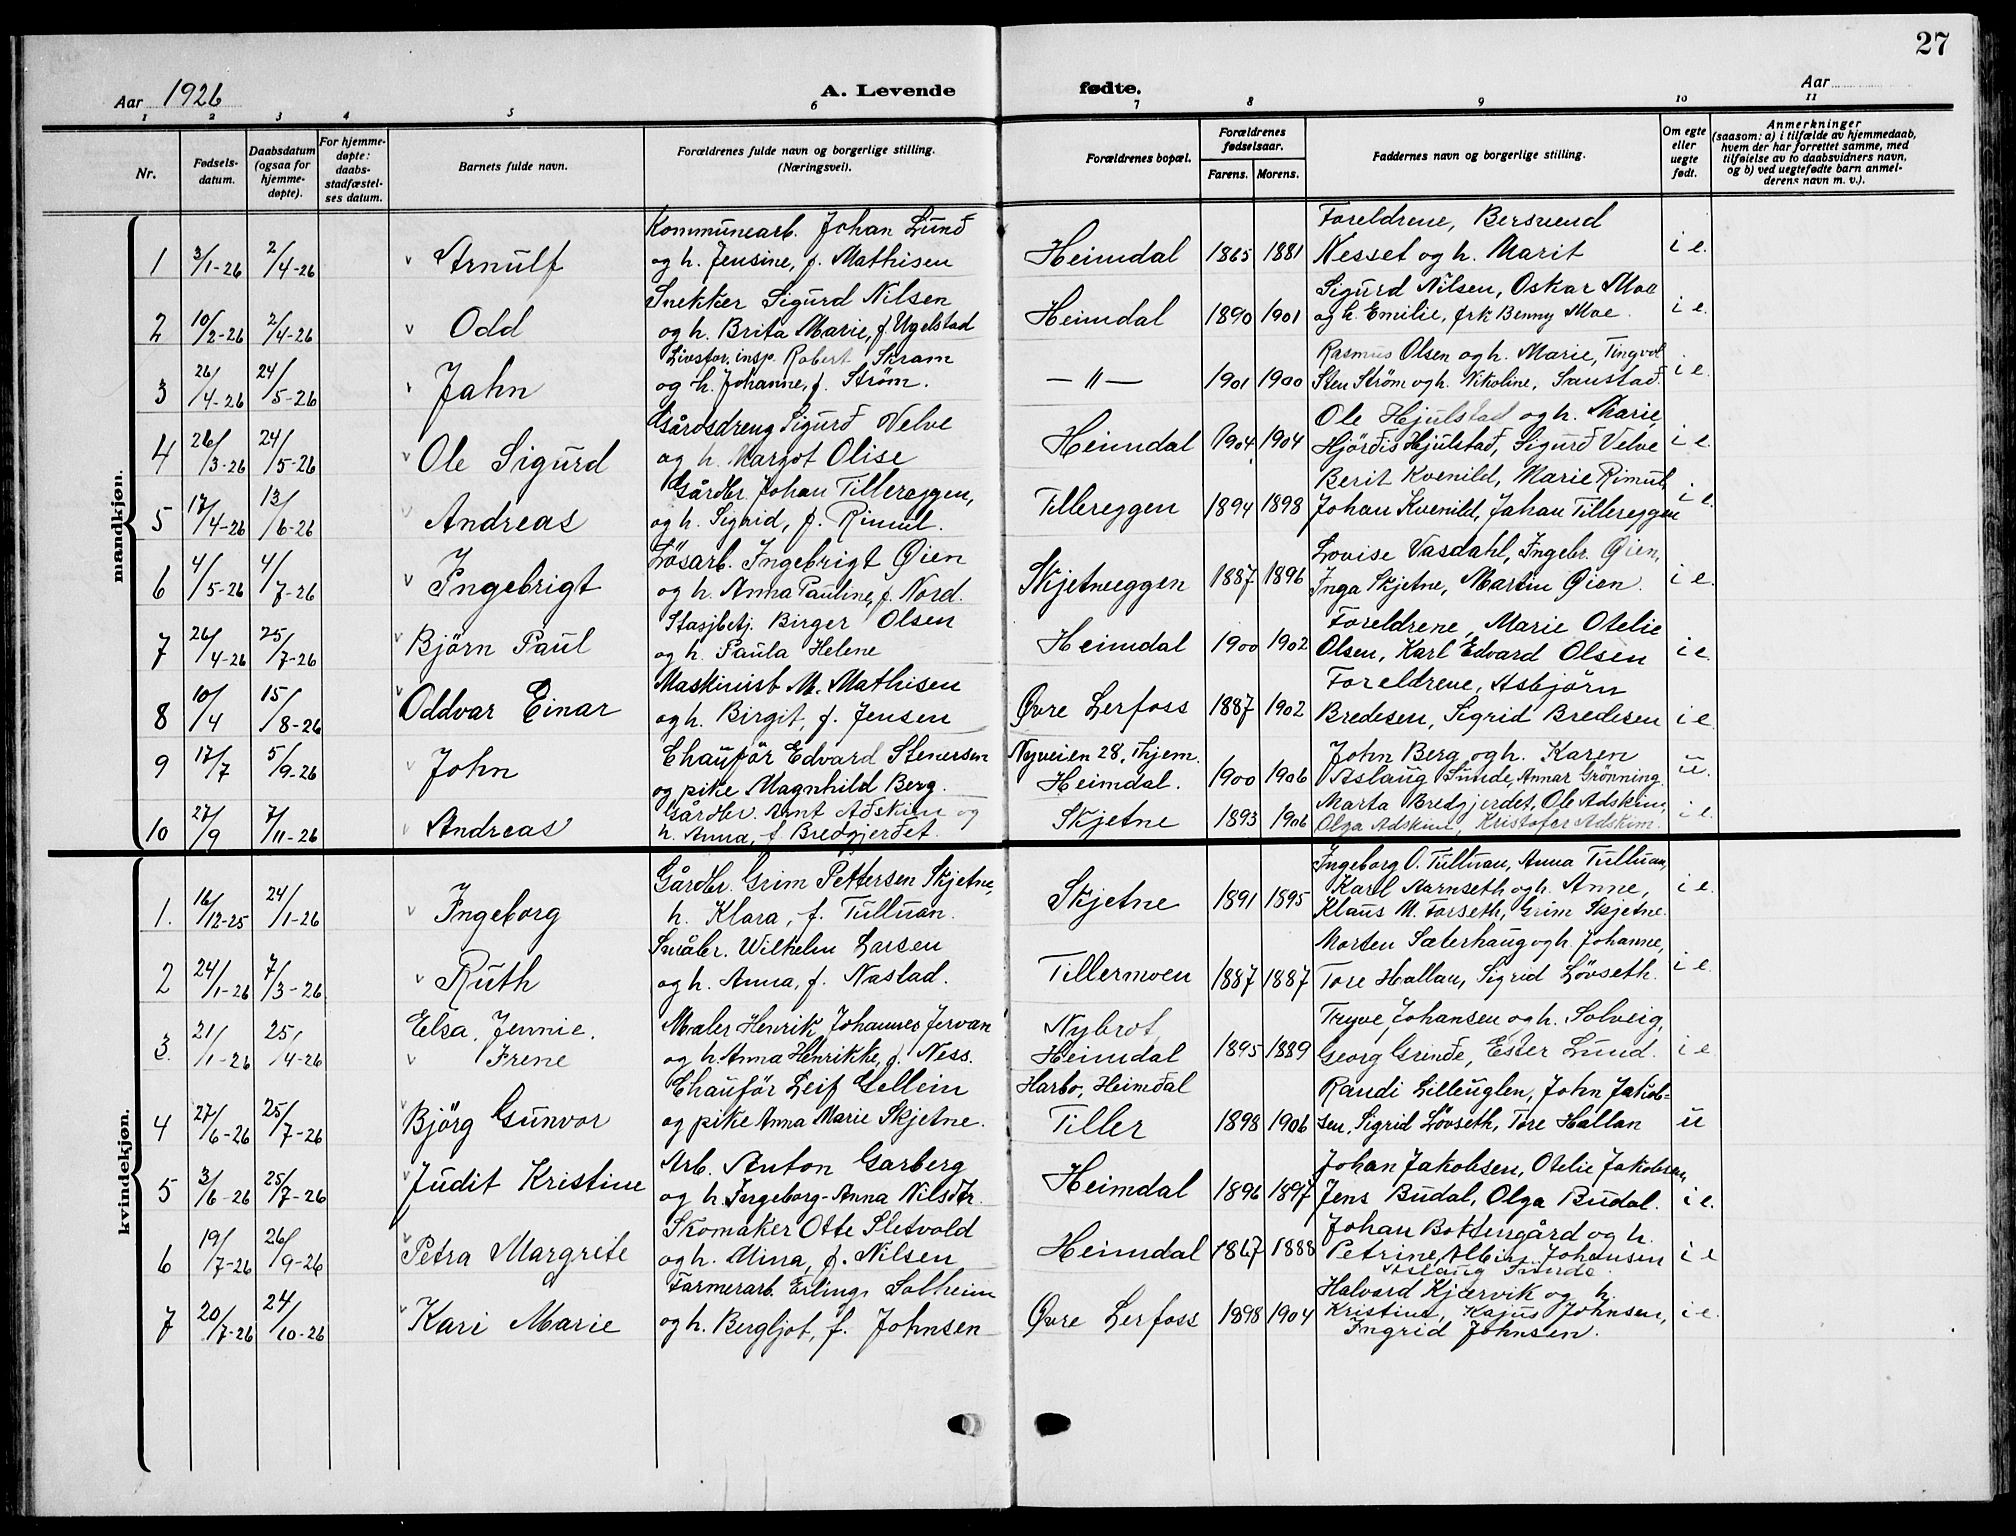 27
Aar 1926
A. Levende
fødte.
Aar
1 2 3 4 5 6 7 8 9 10 11
Nr.
Fødsels-
datum.
Daabsdatum
(ogsaa for
hjemme-
døpte).
For hjemme-
døpte:
daabs-
stadfæstel-
ses datum.
Barnets fulde navn.
Forældrenes fulde navn og borgerlige stilling.
(Næringsvei).
Forældrenes bopæl.
Forældrenes
fødselsaar.
Farens. Morens.
Faddernes navn og borgerlige stilling.
Om egte
eller
uegte
født.
Anmerkninger
(saasom: a) i tilfælde av hjemmedaab,
hvem der har forrettet samme, med
tilføielse av to daabsvidners navn,
og b) ved uegtefødte barn anmel-
derens navn m. v.).
mandkjøn.
Kommunearb. Johan Lund Foreldrene, Bersvend
1 3/1-26 2/4-26 v Arnulf og h. Jensine, f. Mathisen Heimdal 1865 1881 Nesset og h. Marit i e.
Snekker Sigurd Nilsen Sigurd Nilsen, Oskar Moe
2 10/2-26 2/4-26 v Odd og h. Brita Marie, f. Ugelstad Heimdal 1890 1901 og h. Emilie, frk Benny Moe. i e.
Livsfor. insp. Robert Skram Rasmus Olsen og h. Marie, Tingvol
3 26/4-26 24/5-26 v Jahn og h. Johanne, f. Strøm. — " — 1901 1900 Sten Strøm og h. Nikoline, Saustad. i e.
Gårdsdreng Sigurd Velve Ole Hjulstad og h. Marie,
4 26/3-26 24/5-26 v Ole Sigurd og h. Margot Olise Heimdal 1904 1904 Hjördis Hjulstad, Sigurd Velve i e.
Gårdbr. Johan Tillereggen, Berit Kvenild, Marie Rimul,
5 17/4-26 13/6-26 v Andreas og h. Sigrid, f. Rimul. Tillereggen 1894 1898 Johan Kvenild, Johan Tillereggen i e.
Løsarb. Ingebrigt Øien Lovise Vasdahl, Ingebr. Øien,
6 4/5-26 4/7-26 v Ingebrigt og h. Anna Pauline, f. Nord. Skjetneeggen 1887 1896 Inga Skjetne, Martin Øien. i e.
Stasjbetj. Birger Olsen Foreldrene, Marie Otelie
7 26/4-26 25/7-26 v Björn Paul og h. Paula Helene Heimdal 1900 1902 Olsen, Karl Edvard Olsen i e.
Maskinist M. Mathisen Foreldrene, Asbjörn
8 10/4 15/8-26 v Oddvar Einar og h. Birgit, f. Jensen Øvre Lerfoss 1887 1902 Bredesen, Sigrid Bredesen i e
Chauför Edvard Stenersen Nyveien 28, Thjem. John Berg og h. Karen
9 17/7 5/9-26 v John og pike Magnhild Berg. Heimdal. 1900 1906 Aslaug Sunde, Annar Grønning. u.
Gårdbr. Arnt Adskim og Marta Bredgjerdet, Ole Adskim,
10 27/9 7/11-26 v Andreas h. Anna, f. Bredgjerdet. Skjetne 1893 1906 Olga Adskim, Kristofer Adskim. i e.
kvindekjøn.
Ingeborg O. Tulluan, Anna Tulluan,
Gårdbr. Grim Pettersen Skjetne, Karl Aarnseth og h. Anne,
1. 16/12-25 24/1-26 v Ingeborg h. Klara, f. Tulluan. Skjetne 1891 1895 Klaus M. Forseth, Grim Skjetne. i e.
Småbr. Wilhelm Larsen Morten Sæterhaug og h. Johanne,
2 24/1-26 7/3-26 v Ruth og h. Anna, f. Nastad. Tillermoen 1887 1887 Tore Hallan, Sigrid Lövseth. i e.
Elsa Jennie. Maler Henrik Johannes Jervan Nybrot, Tryve Johansen og h. Solveig,
3. 21/1-26 25/4-26 v Irene og h. Anna Henrikke, f. Ness. Heimdal 1895 1889 Georg Grinde, Ester Lund. i e.
Chauför Leif Gellein Harbo, Heimdal Randi Lilleuglen, John Jakob-
4 27/6-26 25/7-26 v Björg Gunvor og pike Anna Marie Skjetne. Tiller 1898 1906 sen, Sigrid Lövseth, Tore Hallan u
Arb. Anton Garberg Johan Jakobsen, Otelie Jakobsen,
5 3/6-26 25/7-26 v Judit Kristine og h. Ingeborg-Anna Nilsdtr. Heimdal 1896 1897 Jens Budal, Olga Budal. i e.
Skomaker Otte Sletvold Johan Bottengård og h.
6 19/7-26 26/9-26 v Petra Margrete og h. Mina, f. Nilsen Heimdal 1867 1888 Petrine, Albin Johansen i e
Aslaug Sunde
Farmerarb. Erling Solheim Halvard Kjærvik og h.
7 20/7-26 24/10-26 v Kari Marie og h. Bergljot, f. Johnsen Øvre Lerfoss 1898 1904 Kristine, Kajus Johnsen, i e.
Ingrid Johnsen.